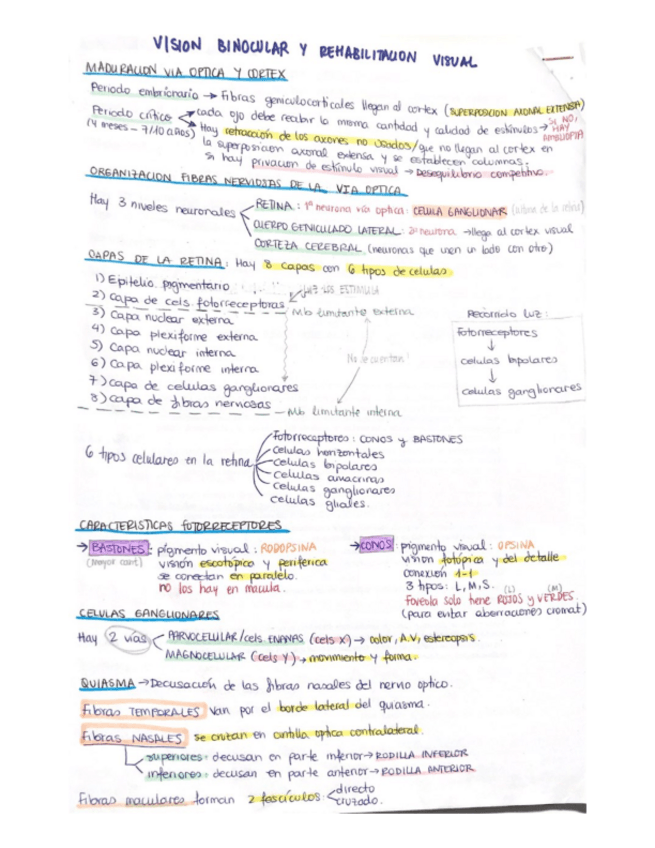 VISION BINOCULAR Y REHABILITACION VISUAL
MADURACION VIA OPTICA Y CORTEX
Periodo embrionario → Fibras geniculocorticales llegan al cortex (SUPERPOSICION AXONAL EXTENSA)
Periodo crítico cada ojo debe recibir la misma cantidad y calidad de estímulos → SI NO, HAY AMBLIOPIA
(4 meses - 7/10 años) Hay retracción de los axones no usados/que no llegan al cortex en
la superposicion axonal extensa y se establecen columnas.
si hay privacion de estímulo visual → Desequilibrio competitivo.
ORGANIZACION FIBRAS NERVIOSAS DE LA VIA OPTICA
Hay 3 niveles neuronales
RETINA: 1ª neurona vía optica: CELULA GANGLIONAR (última de la retina)
CUERPO GENICULADO LATERAL: 2ª neurona → llega al cortex visual
CORTEZA CEREBRAL (neuronas que unen un lado con otro)
CAPAS DE LA RETINA: Hay 8 capas con 6 tipos de celulas
1) Epitelio pigmentario
LUZ LOS ESTIMULA
2) capa de cels. fotorreceptoras
Mb limitante externa
3) Capa nuclear externa
4) Capa plexiforme externa
5) Capa nuclear interna
6) Capa plexiforme interna
7) capa de celulas ganglionares
8) capa de fibras nerviosas
Mb limitante interna
No se cuentan!
Recorrido luz:
fotorreceptores
↓
celulas bipolares
↓
celulas ganglionares
6 tipos celulares en la retina
Fotorreceptores: CONOS y BASTONES
celulas horizontales
celulas bipolares
celulas amacrinas
celulas ganglionares
celulas gliales.
CARACTERISTICAS FOTORRECEPTORES
→ BASTONES: pigmento visual: RODOPSINA
(mayor cant) visión escotópica y periferica
se conectan en paralelo.
no los hay en macula.
→ CONOS: pigmento visual: OPSINA
vision fotópica y del detalle
conexión 1-1
3 tipos: L, M, S.
(L) (M)
foveola solo tiene ROJOS y VERDES.
(para evitar aberraciones cromat)
CELULAS GANGLIONARES
Hay 2 vías
PARVOCELULAR/cels ENANAS (cels X) → color, A.V, estereopsis.
MAGNOCELULAR (cels Y) → movimiento y forma.
QUIASMA → Decusación de las fibras nasales del nervio optico.
Fibras TEMPORALES van por el borde lateral del quiasma.
Fibras NASALES se cruzan en cintilla optica contralateral.
superiores: decusan en parte inferior → RODILLA INFERIOR
inferiores: decusan en parte anterior → RODILLA ANTERIOR
Fibras maculares forman 2 fascículos
directo
cruzado.